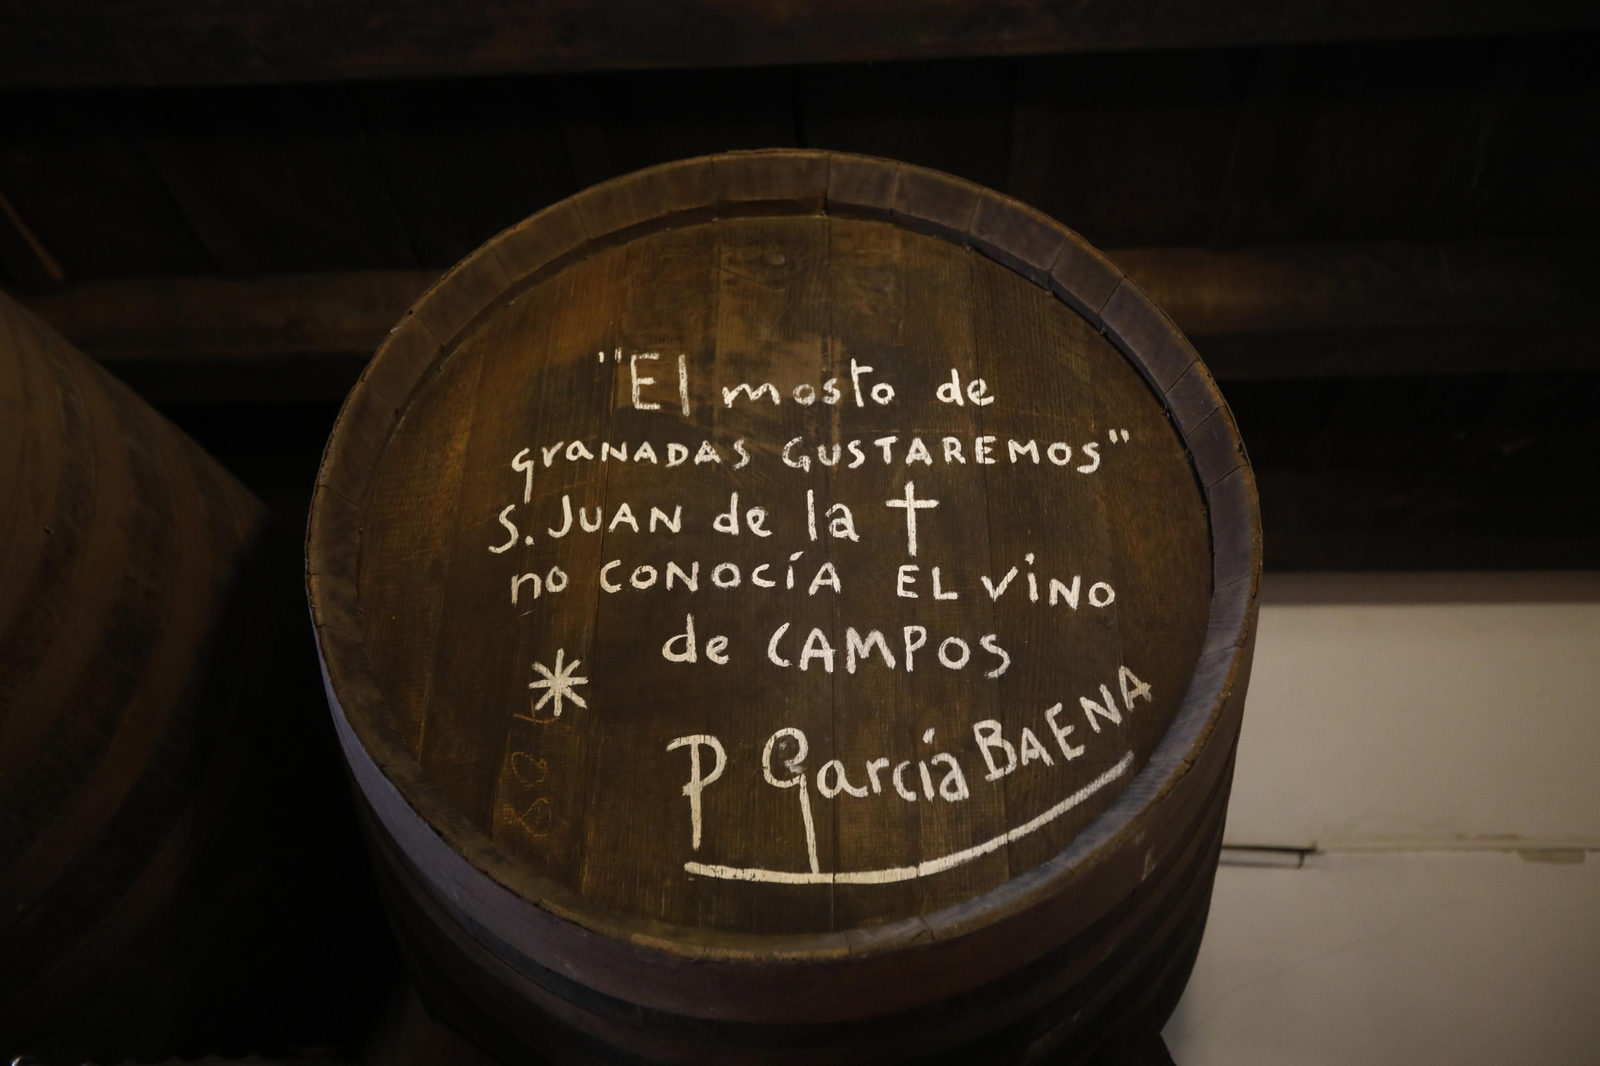 "El mosto de
granadas gustaremos"
S. Juan de la †
no conocía el vino
de Campos
*
P García Baena